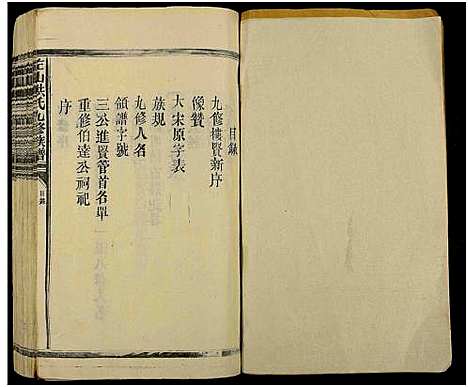 目錄
九修樓賢新序
像贊
大宋原字表
族規
九修人名
領譜字號
三公進賢管首名單
重修伯達公祠祀
序
洪氏九修族譜
目錄